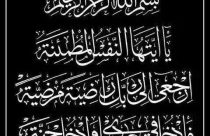 بسم الله الرحمن الرحيم
يا أيتها النفس المطمئنة
ارجعي إلى ربك راضية مرضية
فادخلي في عبادي وادخلي جنتي